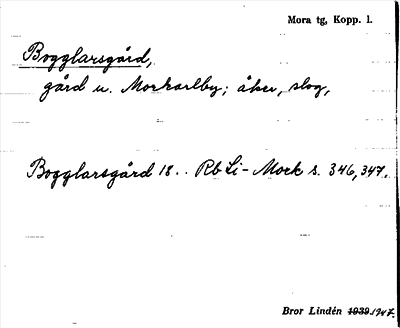 Mora tg, Kopp. l.
Bogglarsgård,
gård u. Morkarlby; åker, slog,
Bogglarsgård 18 . . Rb Li - Mork s. 346, 347.
Bror Lindén 1939. 1947.